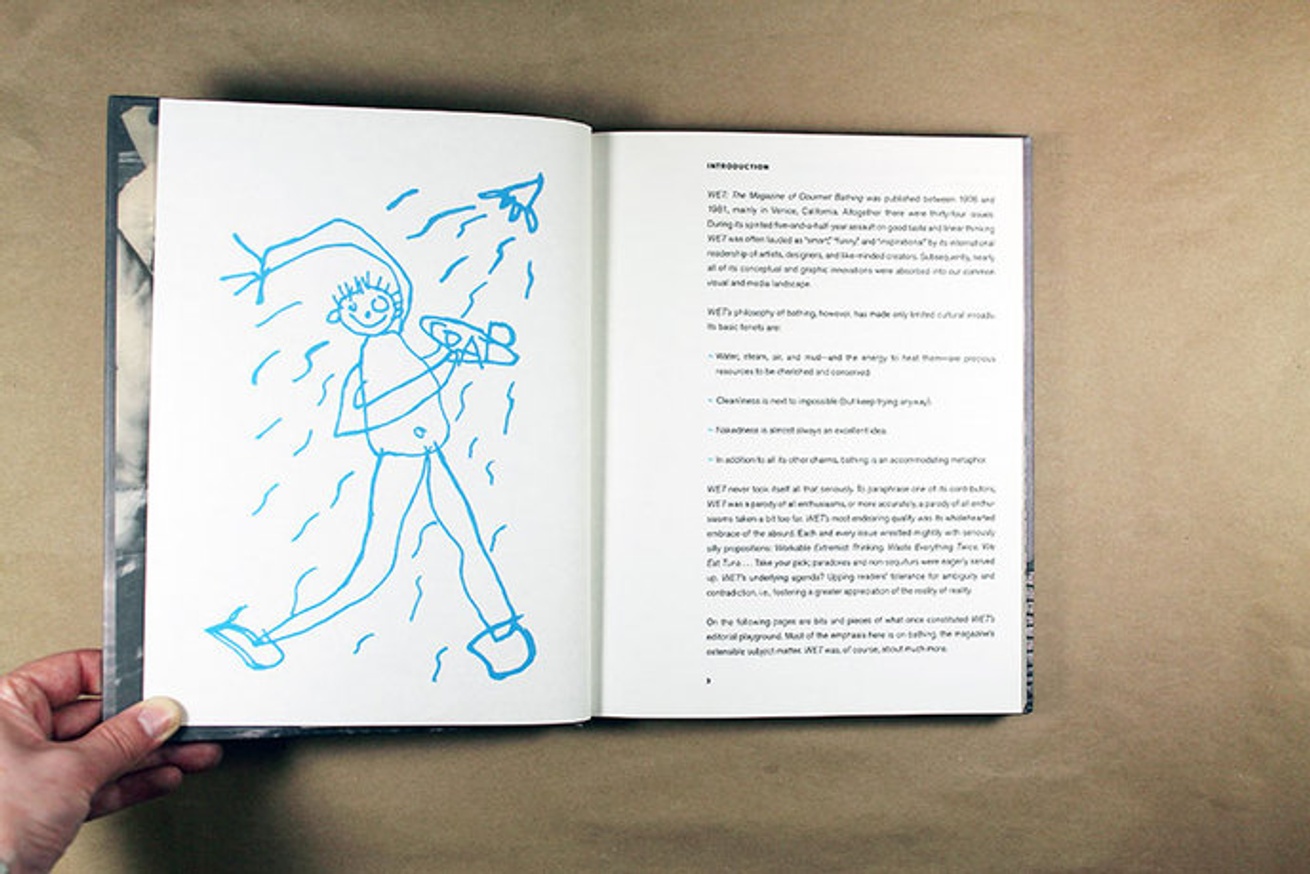 BAB
INTRODUCTION
WET: The Magazine of Gourmet Bathing was published between 1976 and
1981, mainly in Venice, California. Altogether there were thirty-four issues.
During its spirited five-and-a-half-year assault on good taste and linear thinking
WET was often lauded as "smart," "funny" and "inspirational" by its international
readership of artists, designers, and like-minded creators. Subsequently, nearly
all of its conceptual and graphic innovations were absorbed into our common
visual and media landscape.
WET's philosophy of bathing, however, has made only limited cultural inroads.
Its basic tenets are:
- Water, steam, air, and mud—and the energy to heat them—are precious
resources to be cherished and conserved.
- Cleanliness is next to impossible (but keep trying anyway).
- Nakedness is almost always an excellent idea.
- In addition to all its other charms, bathing is an accommodating metaphor.
WET never took itself all that seriously. To paraphrase one of its contributors,
WET was a parody of all enthusiasms, or more accurately, a parody of all enthu-
siasms taken a bit too far. WET's most endearing quality was its wholehearted
embrace of the absurd. Each and every issue wrestled mightily with seriously
silly propositions: Workable Extremist Thinking. Waste Everything Twice. We
Eat Tuna . . . Take your pick; paradoxes and non-sequiturs were eagerly served
up. WET's underlying agenda? Upping readers' tolerance for ambiguity and
contradiction, i.e., fostering a greater appreciation of the reality of reality.
On the following pages are bits and pieces of what once constituted WET's
editorial playground. Most of the emphasis here is on bathing, the magazine's
ostensible subject matter. WET was, of course, about much more.